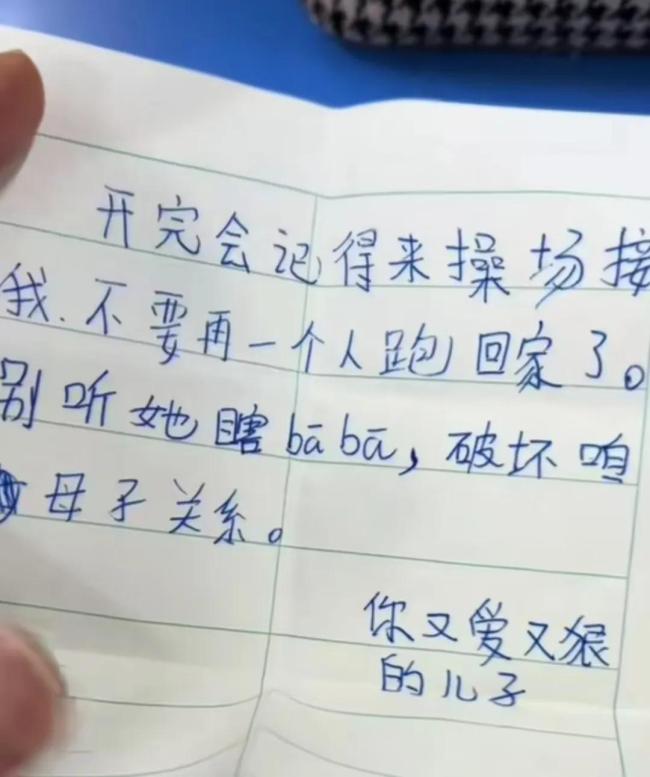 开完会记得来操场接
我.不要再一个人跑回家了。
别听她瞎bā bā,破坏咱
母子关系。
你又爱又狠
的儿子